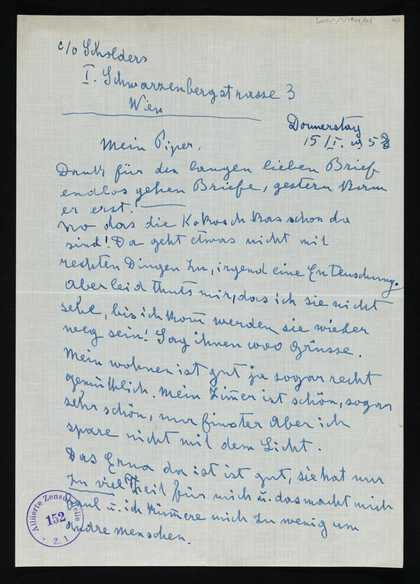 c/o Scholders
I. Schwarzenbergstrasse 3
Wien
Donnerstag
15/I. 195
Mein Piper,
Dank für den langen lieben Brief
endlos gehen Briefe, gestern kam
er erst.
wo das die Kokoschkas schon da
sind! Da geht etwas nicht mit
rechten Dingen zu, irgend eine Enteuschung.
Aber leid thuts mir, das ich sie nicht
sehe, bis ich kom werden sie wieder
weg sein! Sag ihnen Grüsse.
Mein wohnen ist gut ja sogar recht
gemühtlich. Mein Zimer ist schön, sogar
sehr schön, nur finster Aber ich
spare nicht mit dem Licht.
Das Erna da ist ist gut, sie hat nur
zu viel Theil für mich u. das macht mich
faul u. ich kümere mich zu wenig um
andre menschen.
Alliierte Zensurstelle
152